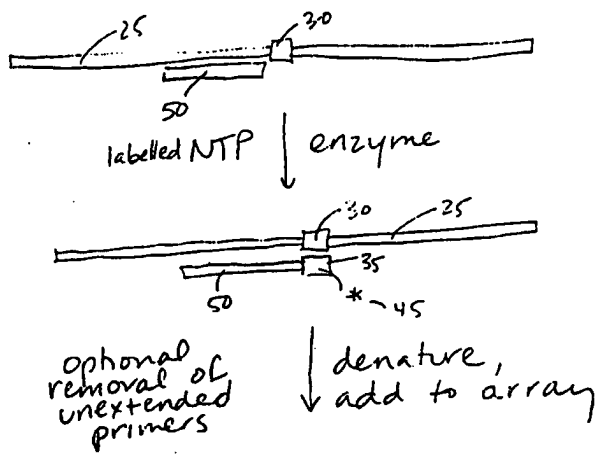 25
30
50
labelled NTP
enzyme
30
25
50
35
* ~ 45
optional
removal of
unextended
primers
denature,
add to array